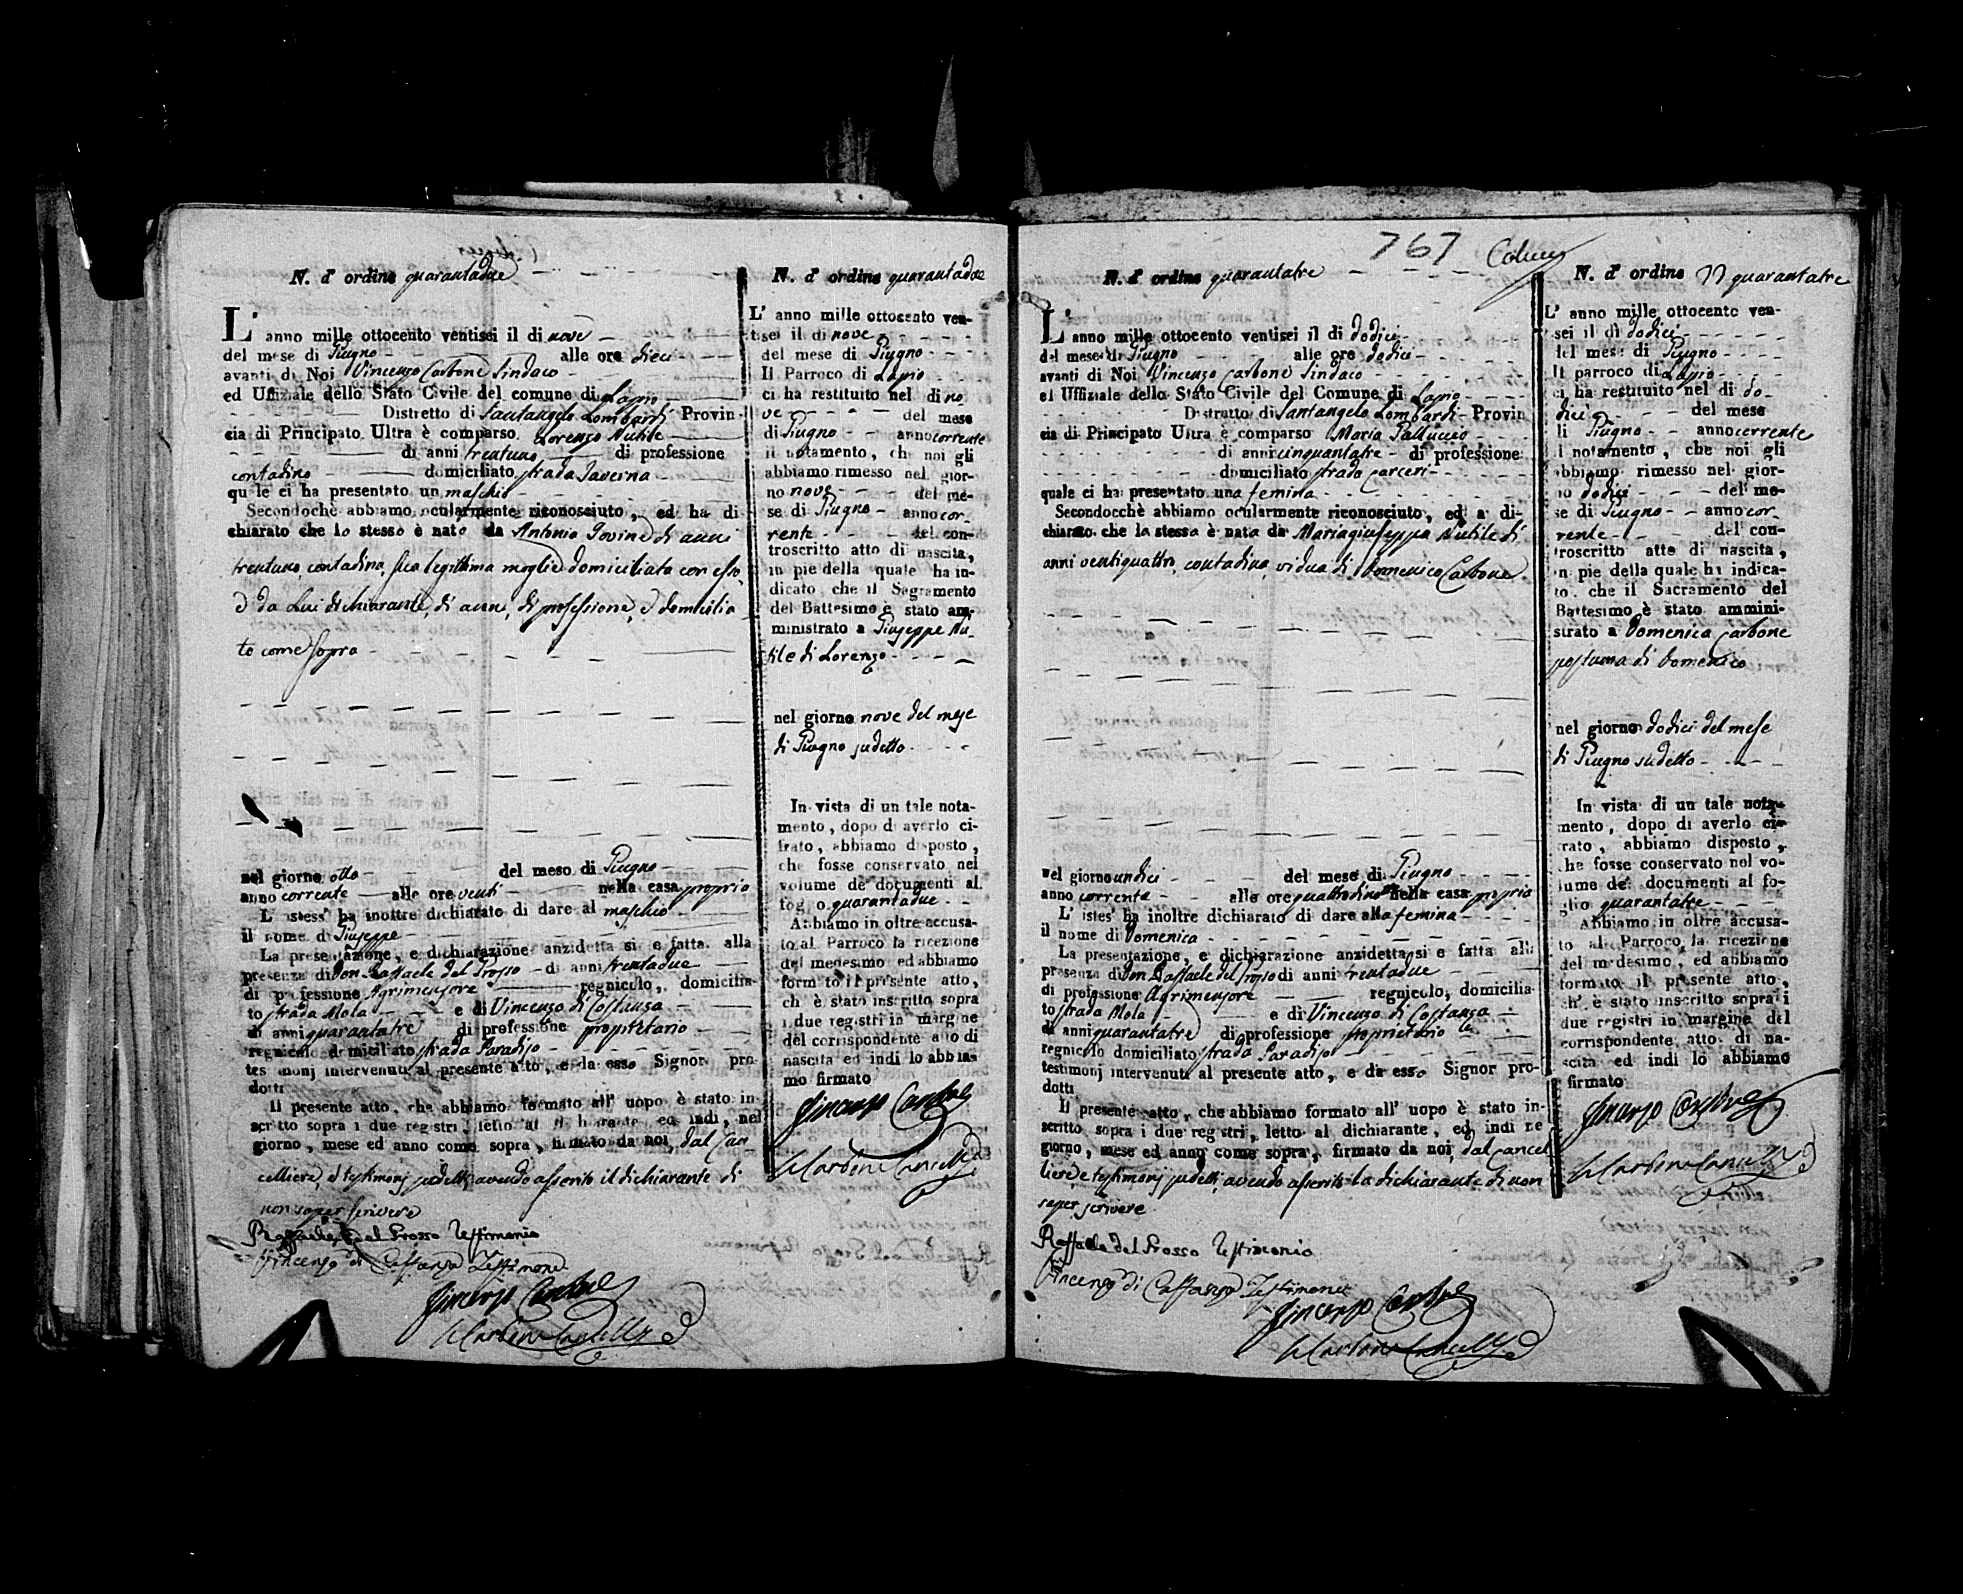 N. d' ordine quarantadue
L' anno mille ottocento ventisei il di nove
del mese di Giugno alle ore dieci
avanti di Noi Vincenzo Carbone Sindaco
ed Uffiziale dello Stato Civile del comune di Lapio
Distretto di Santangelo Lombardi Provin
cia di Principato Ultra è comparso Lorenzo Nutile
di anni trentuno di professione
contadino domiciliato strada Taverna
quale ci ha presentato un maschio
Secondochè abbiamo ocularmente riconosciuto, ed ha di
chiarato che lo stesso è nato da Antonia Iovine di anni
trentuno, contadina, sua legittima moglie domiciliata con esso
e da Lui dichiarante, di anni, di professione, e domicilia
to come sopra
nel giorno otto del mese di Giugno
anno corrente alle ore venti nella casa propria
L' istess' ha inoltre dichiarato di dare al maschio
il nome di Giuseppe
La presentazione, e dichiarazione anzidetta si e fatta alla
presenza di Don Raffaele del Grosso di anni trentadue
di professione Agrimensore regnicolo, domicilia
to strada Mola e di Vincenzo di Costanza
di anni quarantatre di professione proprietario
regnicolo domiciliato strada Paradiso
testimonj intervenuti al presente atto, e da esso Signor pro
dotti
Il presente atto, che abbiamo formato all' uopo è stato in
scritto sopra i due registri, letto al dichiarante, ed indi, nel
giorno, mese ed anno come sopra, firmato da noi, dal Can
celliere, e testimonj sudetti, avendo asserito il dichiarante di
non saper scrivere
Raffaele del Grosso Testimonio
Vincenzo di Costanza Testimone
Vincenzo Carbone
N. d' ordine quarantadue
L' anno mille ottocento ven-
tisei il di nove
del mese di Giugno
Il Parroco di Lapio
ci ha restituito nel di no
ve del mese
di Giugno anno corrente
il notamento, che noi gli
abbiamo rimesso nel gior-
no nove del me-
se di Giugno anno cor_
rente del con-
troscritto atto di nascita,
in pie della quale ha in-
dicato che il Sagramento
del Battesimo è stato am-
ministrato a Giuseppe Nu_
tile di Lorenzo
nel giorno nove del mese
di Giugno sudetto
In vista di un tale nota-
mento, dopo d averlo ci-
frato, abbiamo disposto,
che fosse conservato nel
volume de documenti al
foglio quarantadue
Abbiamo in oltre accusa-
to al Parroco la ricezione
del medesimo ed abbiamo
formato il presente atto,
ch è stato inscritto sopra
i due registri in margine
del corrispondente atto di
nascita ed indi lo abbia-
mo firmato
Vincenzo Carbone
767
N. d' ordine quarantatre
L' anno mille ottocento ventisei il di dodici
del mese di Giugno alle ore dodici
avanti di Noi Vincenzo Carbone Sindaco
ed Uffiziale dello Stato Civile del Comune di Lapio
Distretto di Santangelo Lombardi Provin
cia di Principato Ultra è comparso Maria Palluccio
di anni cinquantatre di professione
domiciliato strada Carceri
quale ci ha presentato una femina
Secondocchè abbiamo ocularmente riconosciuto, ed a di-
chiarato che la stessa è nata da Mariagiuseppa Nutile di
anni ventiquattro, contadina, vidua di Domenico Carbone
nel giorno undici del mese di Giugno
anno corrente alle ore quattordino nella casa propria
L' istes' ha inoltre dichiarato di dare alla femina
il nome di Domenica
La presentazione, e dichiarazione anzidetta si e fatta alla
presenza di Don Raffaele del Grosso di anni trentadue
di professione Agrimensore regnicolo, domicilia
to strada Mola e di Vincenzo di Costanza
di anni quarantatre di professione proprietario
regnicolo domiciliato strada Paradiso
testimonj intervenuti al presente atto, e da esso Signor pro-
dotti
Il presente atto, che abbiamo formato all' uopo è stato in-
scritto sopra i due registri, letto al dichiarante, ed indi ne
giorno, mese ed anno come sopra, firmato da noi, dal Cancel
liere e testimonj sudetti, avendo asserito la dichiarante di non
saper scrivere
Raffaele del Grosso Testimonio
Vincenzo di Costanza Testimone
Vincenzo Carbone
N. d' ordine quarantatre
L' anno mille ottocento ven-
tisei il di dodici
del mese di Giugno
Il parroco di Lapio
ci ha restituito nel di do_
dici del mese
di Giugno anno corrente
il notamento, che noi gli
abbiamo rimesso nel gior-
no dodici del me-
se di Giugno anno cor_
rente del con-
troscritto atto di nascita,
in pie della quale ha indica-
to che il Sacramento del
Battesimo è stato ammini-
strato a Domenica Carbone
postuma di Domenico
nel giorno dodici del mese
di Giugno sudetto
In vista di un tale nota-
mento, dopo di averlo ci-
frato, abbiamo disposto,
che fosse conservato nel vo-
lume de' documenti al fo-
glio quarantatre
Abbiamo in oltre accusa-
to al Parroco la ricezione
del medesimo, ed abbiamo
formato il presente atto,
ch' è stato inscritto sopra i
due registri in margine del
corrispondente atto di na-
scita ed indi lo abbiamo
firmato
Vincenzo Carbone